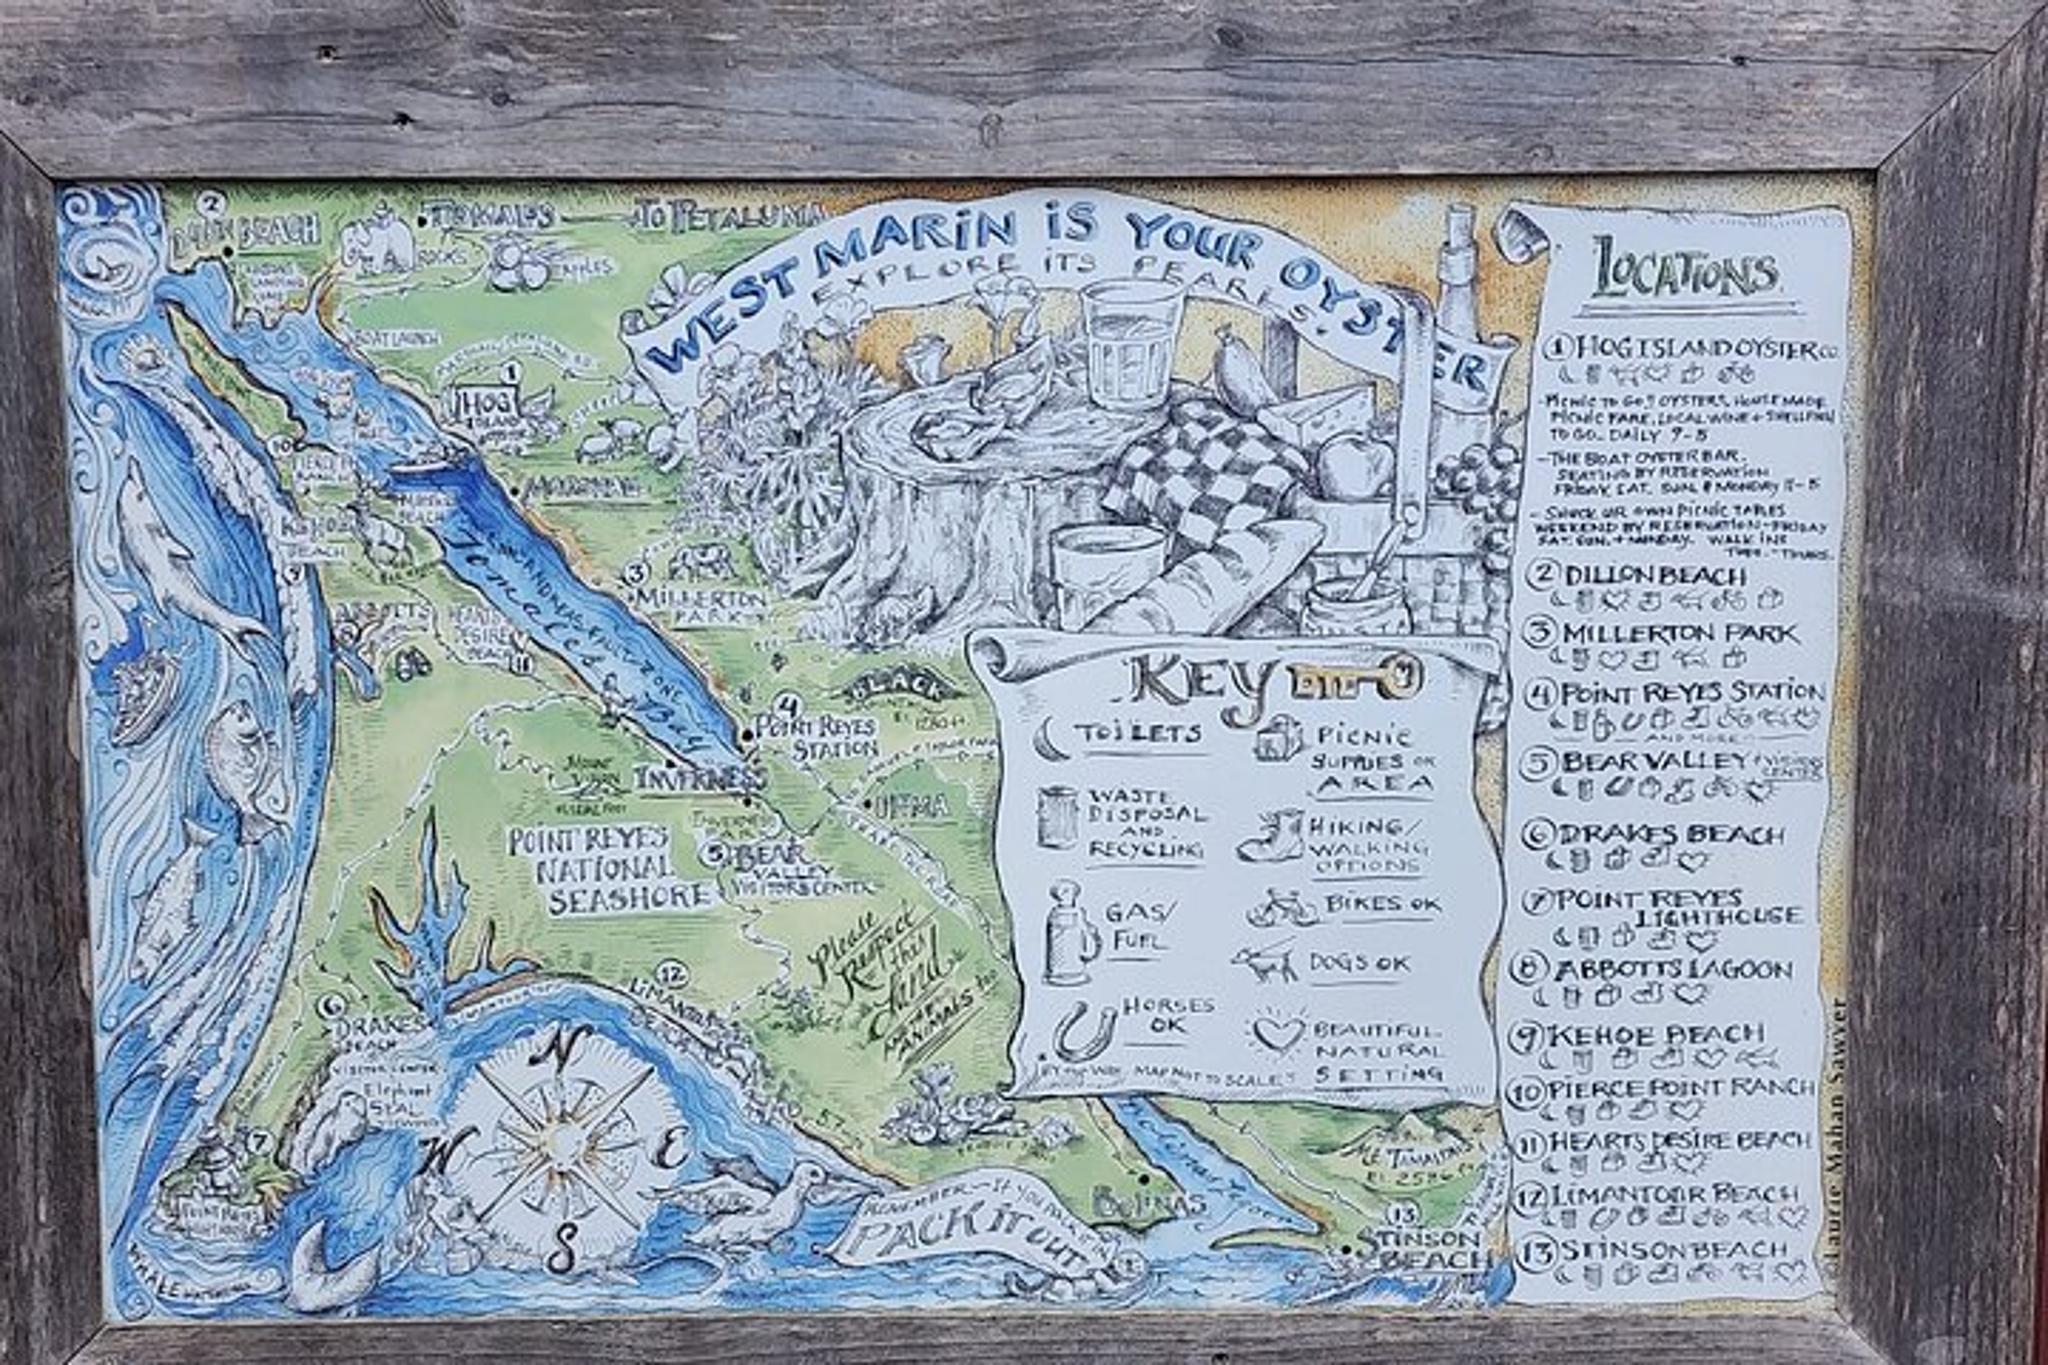 2
BEACH
TOMALES
TO PETALUMA
ROCKS
BOAT LAUNCH
WEST MARIN IS YOUR OYSTER
EXPLORE ITS PEARLS.
1
HOG
ISLAND
10
PIERCE PT
RANCH
MARSHALL
KEHOE
BEACH
9
3
MILLERTON
PARK
ABBOTTS
8
HEARTS
DESIRE
BEACH
11
Tomales Bay
4
POINT REYES
STATION
BLACK
MOUNTAIN
MOUNT
VISION
INVERNESS
INVERNESS
PARK
OLEMA
POINT REYES
NATIONAL
SEASHORE
5
BEAR
VALLEY
VISITORS CENTER
Please
Respect
this
Land
ANIMALS too
12
LIMANTOUR
BEACH
6
DRAKES
BEACH
VISITOR CENTER
Elephant
SEAL
7
POINT REYES
N
W
E
S
WHALE WATCHING
REMEMBER - IF YOU PACK IT IN
PACK IT OUT
BOLINAS
MT. TAMALPAIS
13
STINSON
BEACH
KEY
TOILETS
PICNIC
SUPPLIES OR
AREA
WASTE
DISPOSAL
AND
RECYCLING
HIKING/
WALKING
OPTIONS
GAS/
FUEL
BIKES OK
DOGS OK
HORSES
OK
BEAUTIFUL
NATURAL
SETTING
BY THE WAY, MAP NOT TO SCALE
LOCATIONS
1 HOG ISLAND OYSTER CO.
- PICNIC TO GO! OYSTERS, HOUSEMADE
PICNIC FARE, LOCAL WINE + SHELLFISH
TO GO. DAILY 9-5
- THE BOAT OYSTER BAR.
SEATING BY RESERVATION
FRIDAY, SAT. SUN. & MONDAY 11-5
- SHUCK UR OWN PICNIC TABLES
WEEKEND BY RESERVATION - FRIDAY
SAT. SUN. + MONDAY. WALK INS
TUES. - THURS.
2 DILLON BEACH
3 MILLERTON PARK
4 POINT REYES STATION
AND MORE
5 BEAR VALLEY VISITORS
CENTER
6 DRAKES BEACH
7 POINT REYES
LIGHTHOUSE
8 ABBOTTS LAGOON
9 KEHOE BEACH
10 PIERCE POINT RANCH
11 HEARTS DESIRE BEACH
12 LIMANTOUR BEACH
13 STINSON BEACH
Laurie Mahan Sawyer